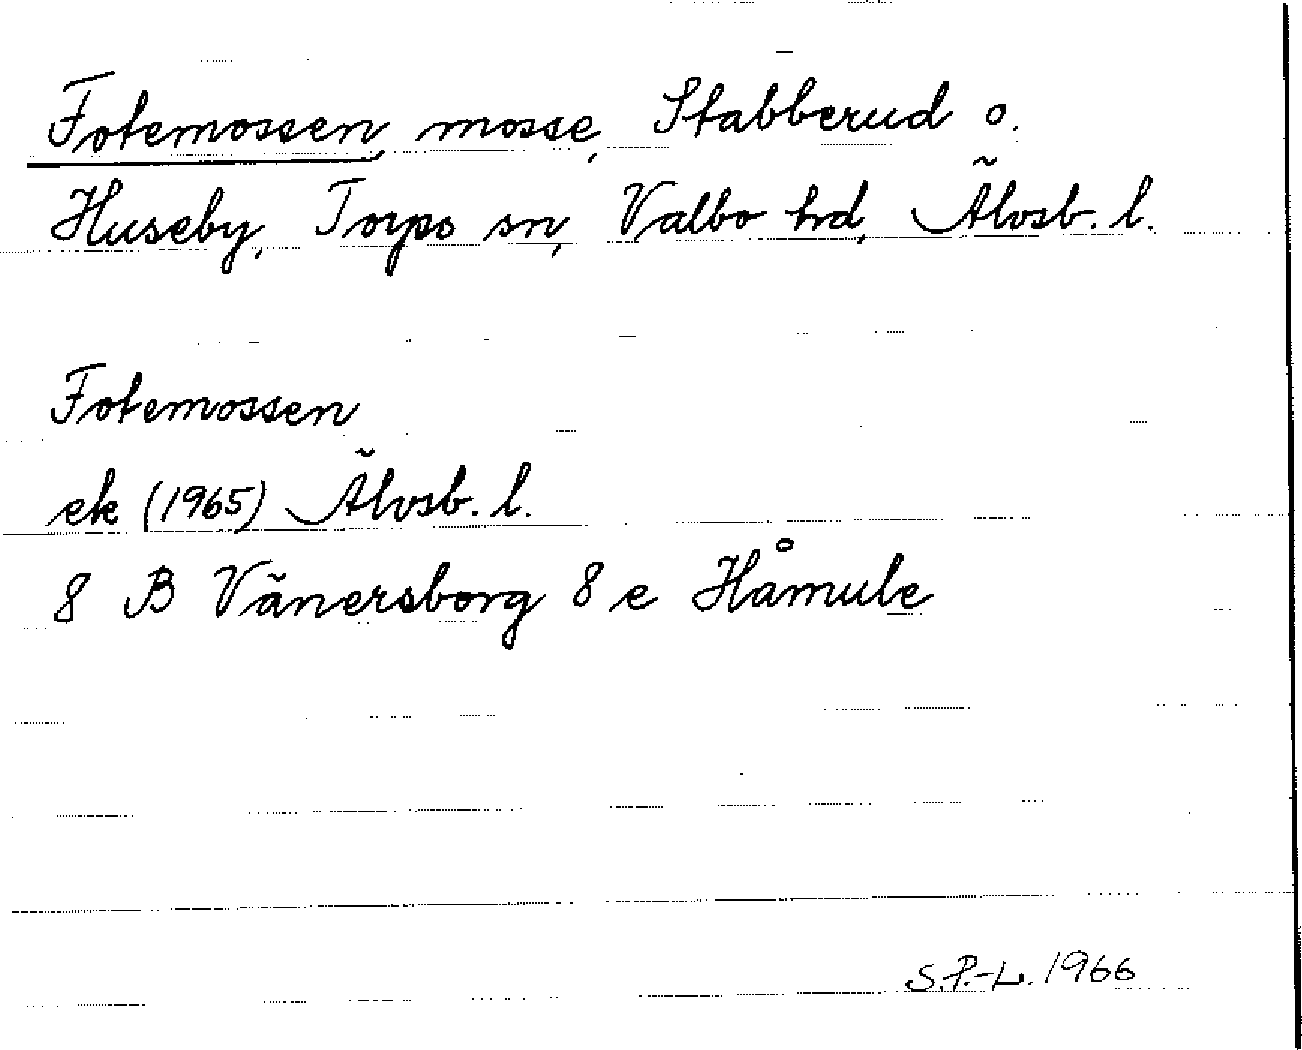 Fotemossen, mosse, Stabberud o.
Huseby, Torpo sn, Valbo hd, Älvsb. l.
Fotemossen
ek (1965) Älvsb. l.
8 B Vänersborg 8 e Håmule
S.P.-L. 1966